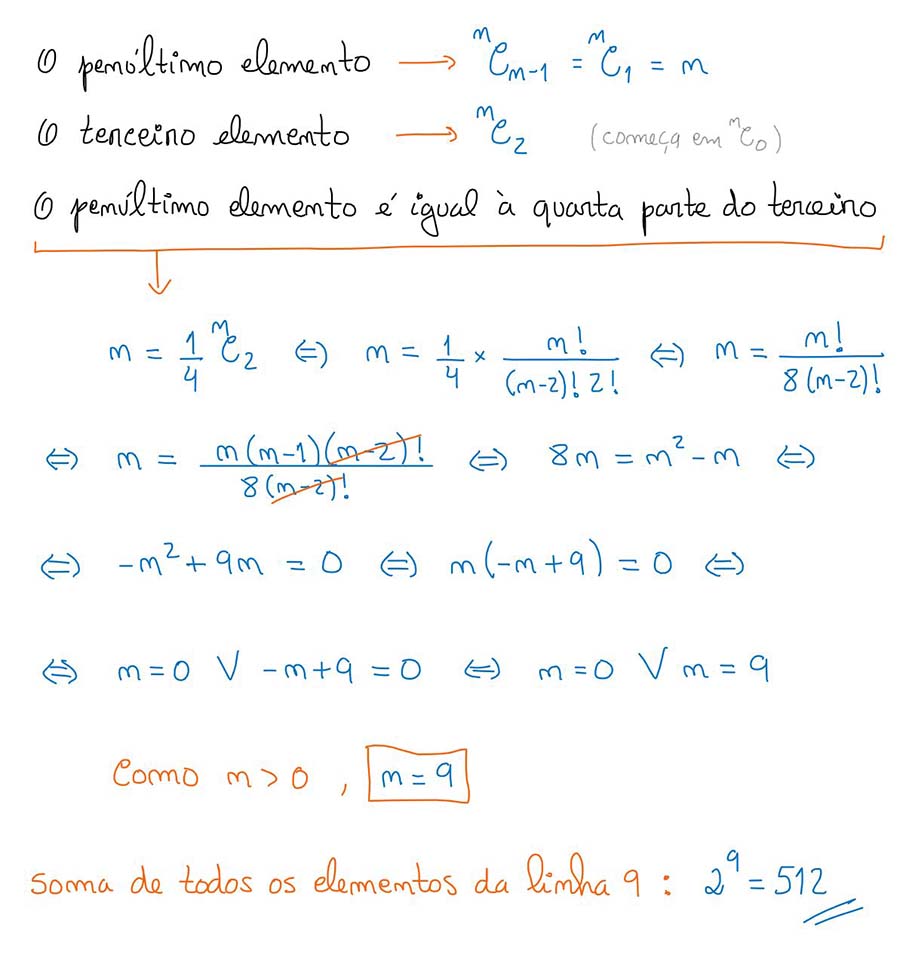 O penúltimo elemento → ⁿC_{n-1} = ⁿC₁ = n
O terceiro elemento → ⁿC₂ (começa em ⁿC₀)
O penúltimo elemento é igual à quarta parte do terceiro
n = 1/4 ⁿC₂ ⇔ n = 1/4 × n!/((n-2)! 2!) ⇔ n = n!/(8(n-2)!)
⇔ n = n(n-1)(n-2)!/(8(n-2)!) ⇔ 8n = n² - n ⇔
⇔ -n² + 9n = 0 ⇔ n(-n+9) = 0 ⇔
⇔ n=0 ∨ -n+9 = 0 ⇔ n=0 ∨ n = 9
Como n > 0 , n = 9
soma de todos os elementos da linha 9 : 2⁹ = 512